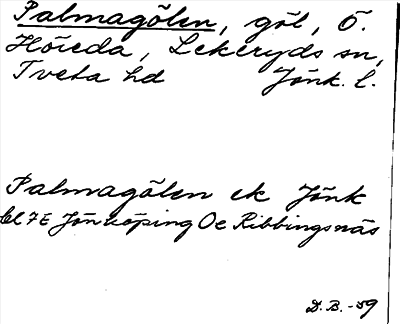 Palmagölen, göl, Ö.
Höreda, Lekeryds sn,
Tveta hd Jönk. l.
Palmagölen ek Jönk
bl 7E Jönköping Öe Ribbingsnäs
D.B.-59